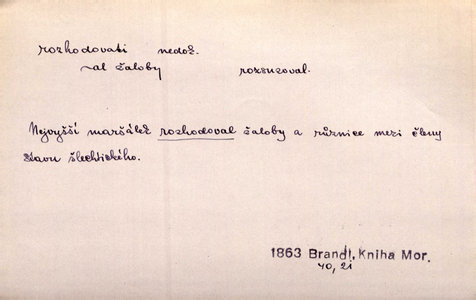 rozhodovati nedož.
~al žaloby rozsuzoval.
Nejvyšší maršálek rozhodoval žaloby a různice mezi členy
stavu šlechtického.
1863 Brandl, Kniha Mor.
40, 21